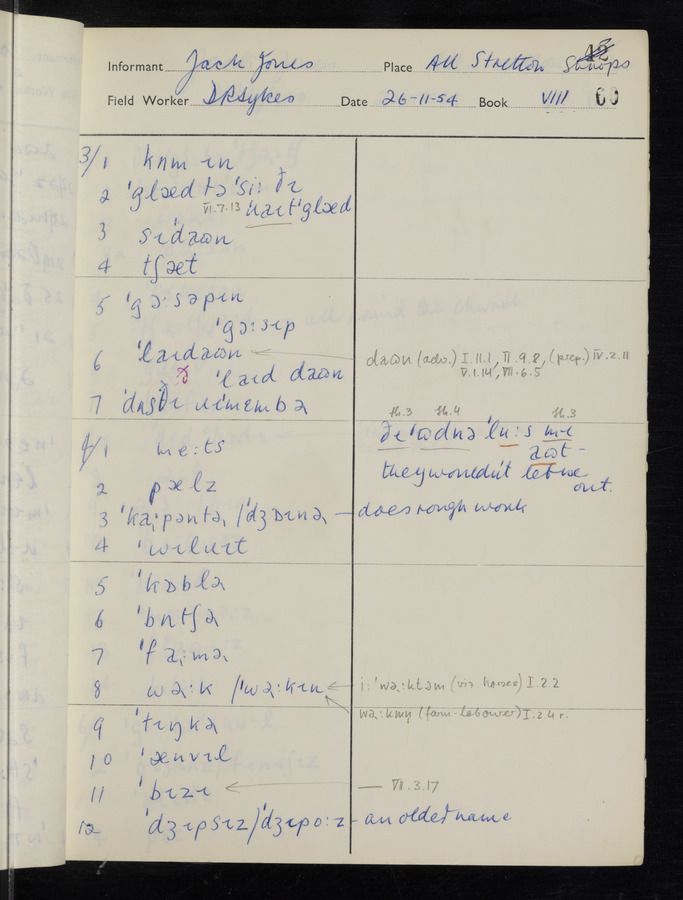 Informant Jack Jones Place All Stretton Shrops
Field Worker D R Sykes Date 26-11-54 Book VIII 60
3/1 kʌm ɪn
2 ˈglæd tə ˈsiː ðɪ
VI.7.13 naɪt ˈglæd
3 sɪdaʊn
4 tʃæt
5 ˈgɔːsəpɪn
ˈgɔːsɪp
6 ˈlaɪdaʊn daʊn (adv.) I.11.1, II.9.8, (prep.) IV.2.11
V.1.14, VII.6.5
ˈlaɪd daʊn
7 ˈdʌsðɪ ɹɪmembə
th.3 th.4 th.3
4/1 me:ts ðeˈʊdnə ˈluːs mɪ
aʊt -
2 pælz they wouldn't let me
out.
3 ˈkaːpəntə /ˈdʒɒɪnə — does rough work
4 ˈwɪlɹɪt
5 ˈkɒblə
6 ˈbʌtʃə
7 ˈfaːmə
8 wəːk /ˈwəːkɪn iːˈwəːktəm (viz. horses) I.2.2
wəːkmn (farm-labourer) I.2.4 r.
9 ˈtɪŋkə
10 ˈænvɪl
11 ˈbɪzɪ — VII.3.17
12 ˈdʒɪpsɪz/ˈdʒɪpoːz - an older name